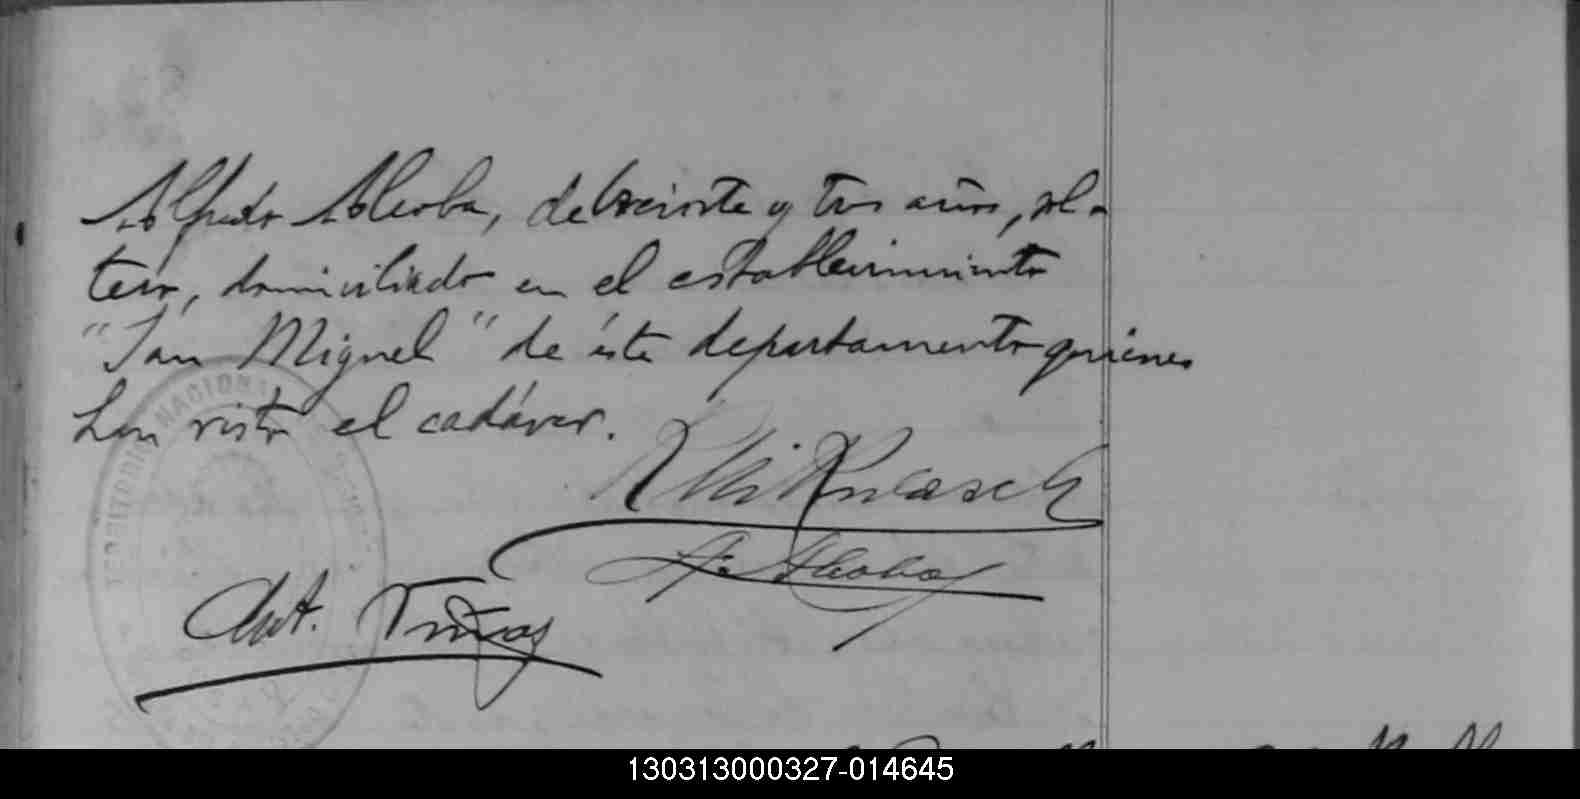 Alfredo Alcoba, de treinta y tres años, sol-
tero, domiciliado en el establecimiento
"San Miguel" de éste departamento quienes
han visto el cadáver.
A. Alcoba
Ant.
TERRITORIO NACIONAL
130313000327-014645